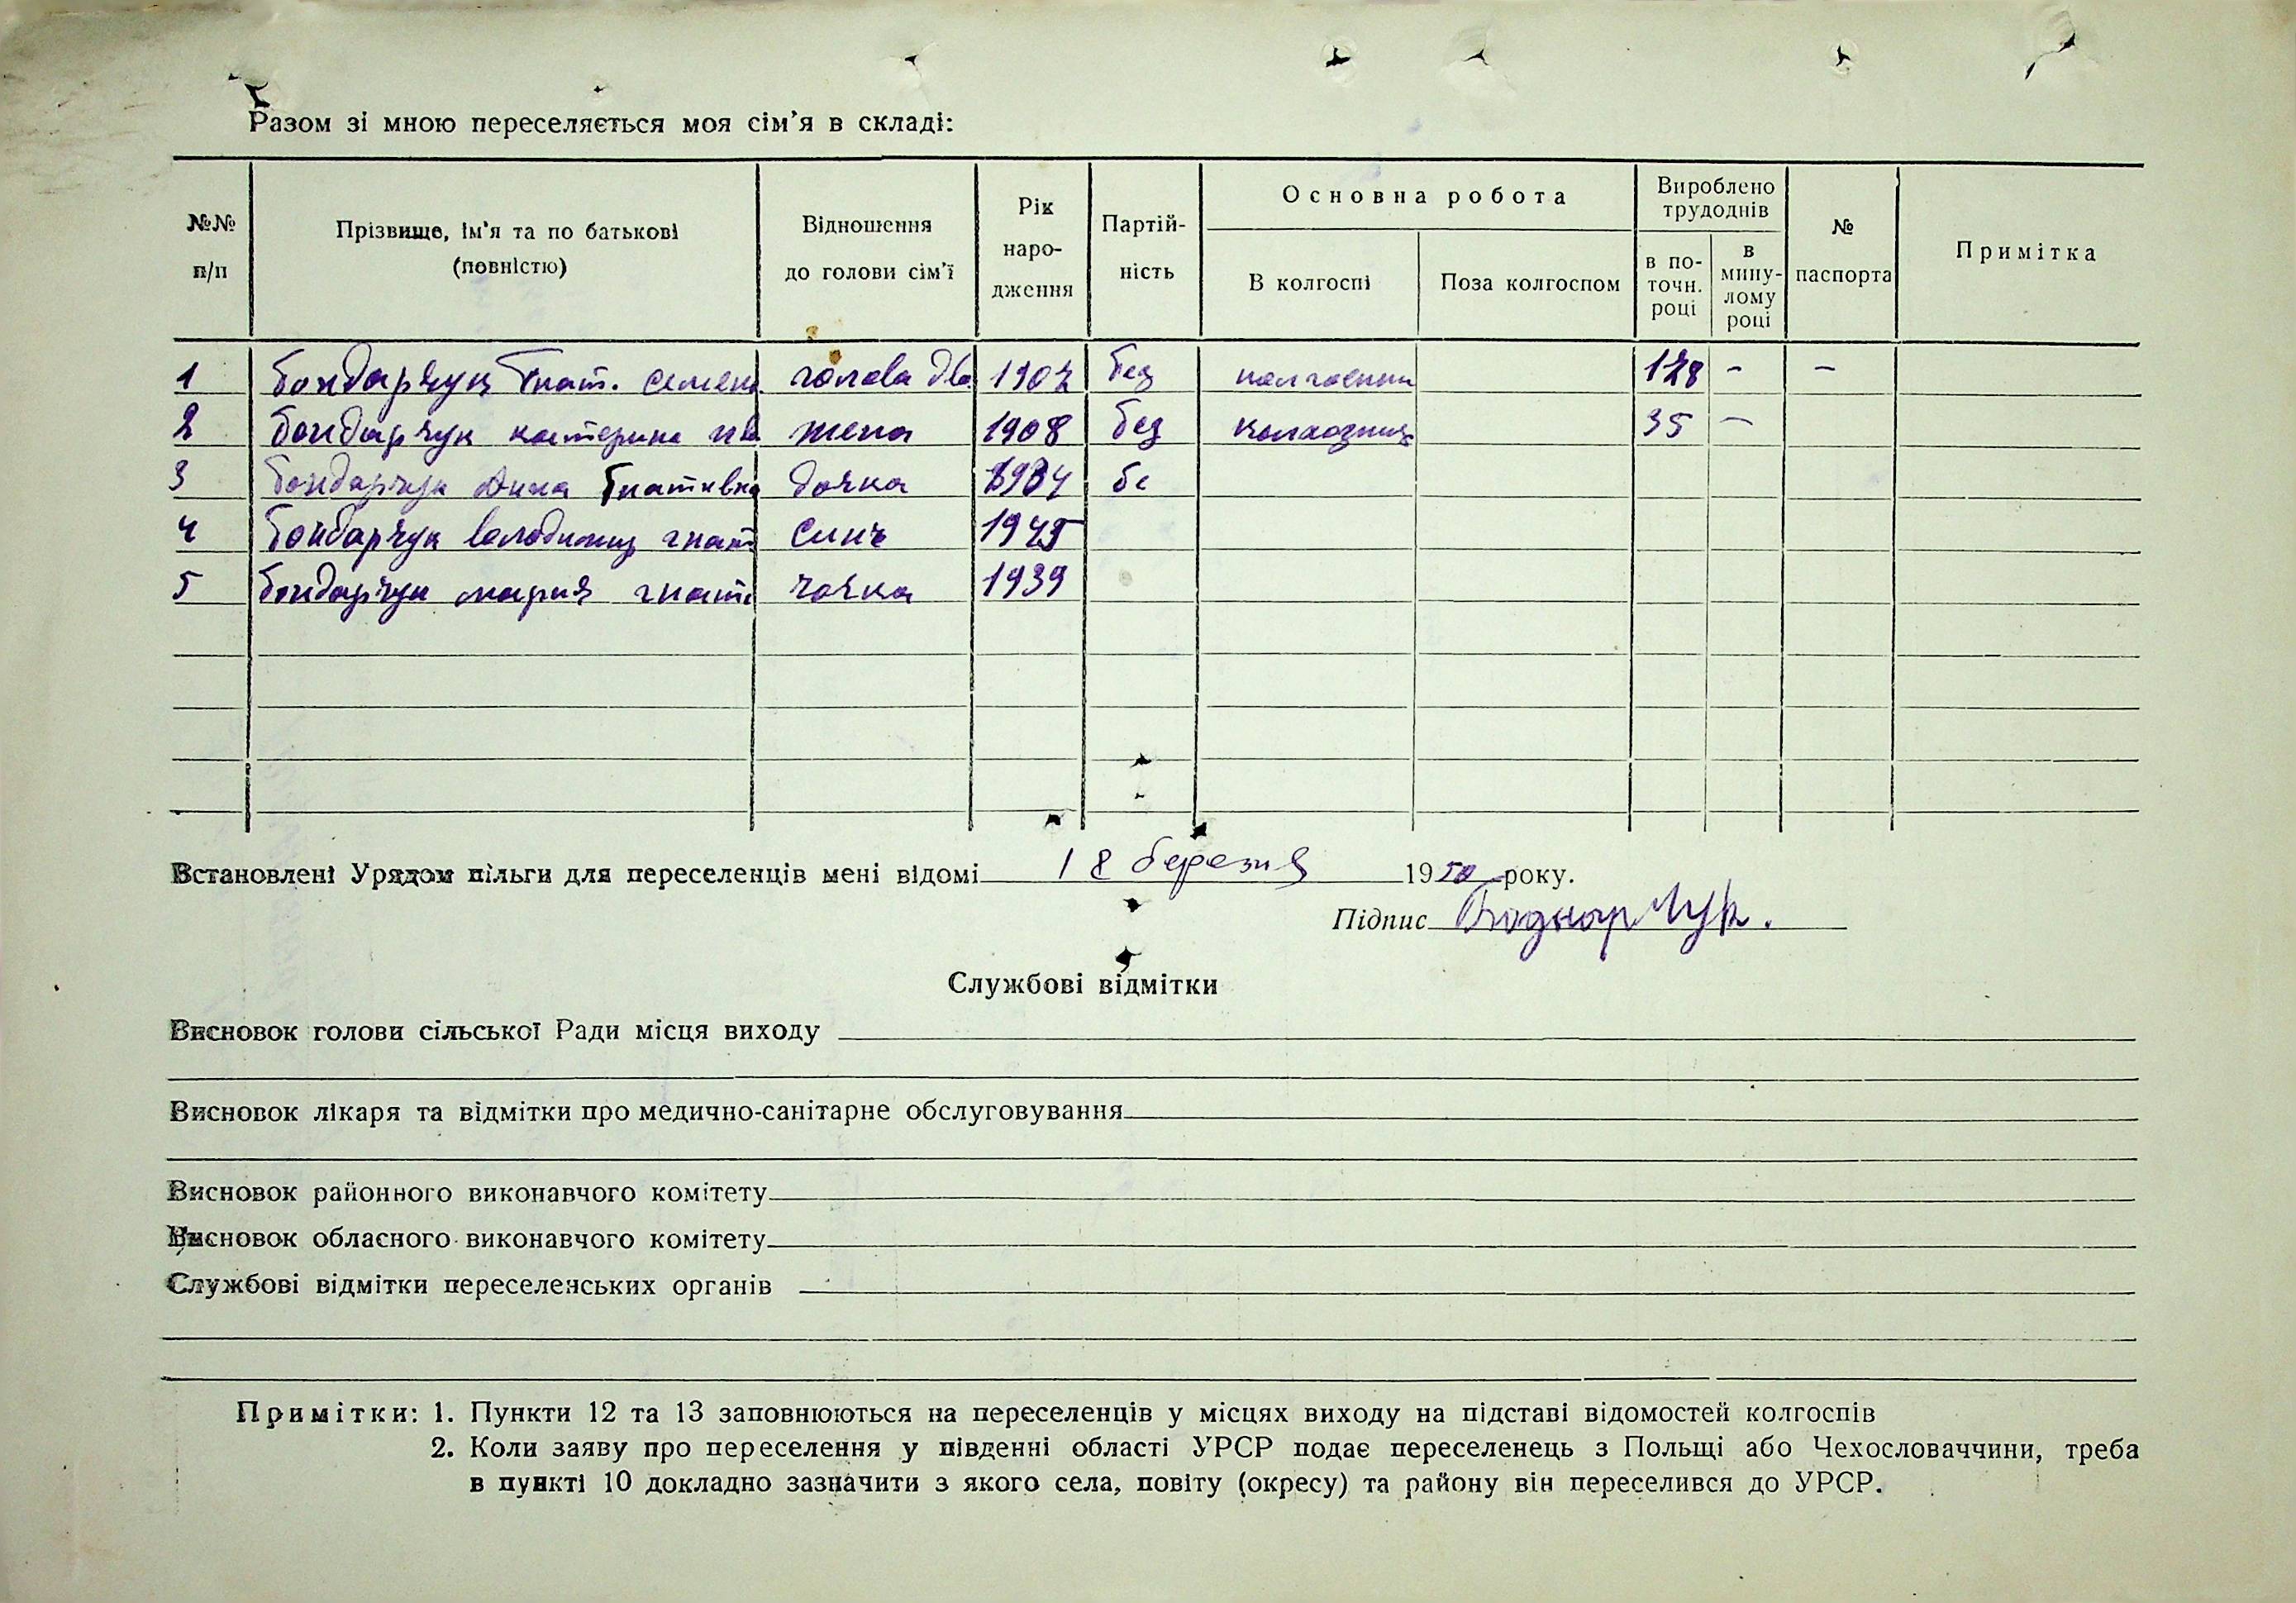 Разом зі мною переселяється моя сім'я в складі:
№№ п/п
Прізвище, ім'я та по батькові (повністю)
Відношення до голови сім'ї
Рік народження
Партійність
Основна робота
В колгоспі
Поза колгоспом
Вироблено трудоднів
в поточн. році
в минулому році
№ паспорта
Примітка
1 Бондарчук Гнат. Семен голова дво 1902 без колгоспник 128 - -
2 Бондарчук катерина ива жена 1908 без колхозниц 35 -
3 Бондарчук Анна Гнативна дочка 1934 бе
4 Бондарчук володимир гнат синъ 1945
5 Бондарчук мария гнат чочка 1939
Встановлені Урядом пільги для переселенців мені відомі 18 березня 1950 року.
Підпис
Службові відмітки
Висновок голови сільської Ради місця виходу
Висновок лікаря та відмітки про медично-санітарне обслуговування
Висновок районного виконавчого комітету
Висновок обласного виконавчого комітету
Службові відмітки переселенських органів
Примітки: 1. Пункти 12 та 13 заповнюються на переселенців у місцях виходу на підставі відомостей колгоспів
2. Коли заяву про переселення у південні області УРСР подає переселенець з Польщі або Чехословаччини, треба
в пункті 10 докладно зазначити з якого села, повіту (окресу) та району він переселився до УРСР.